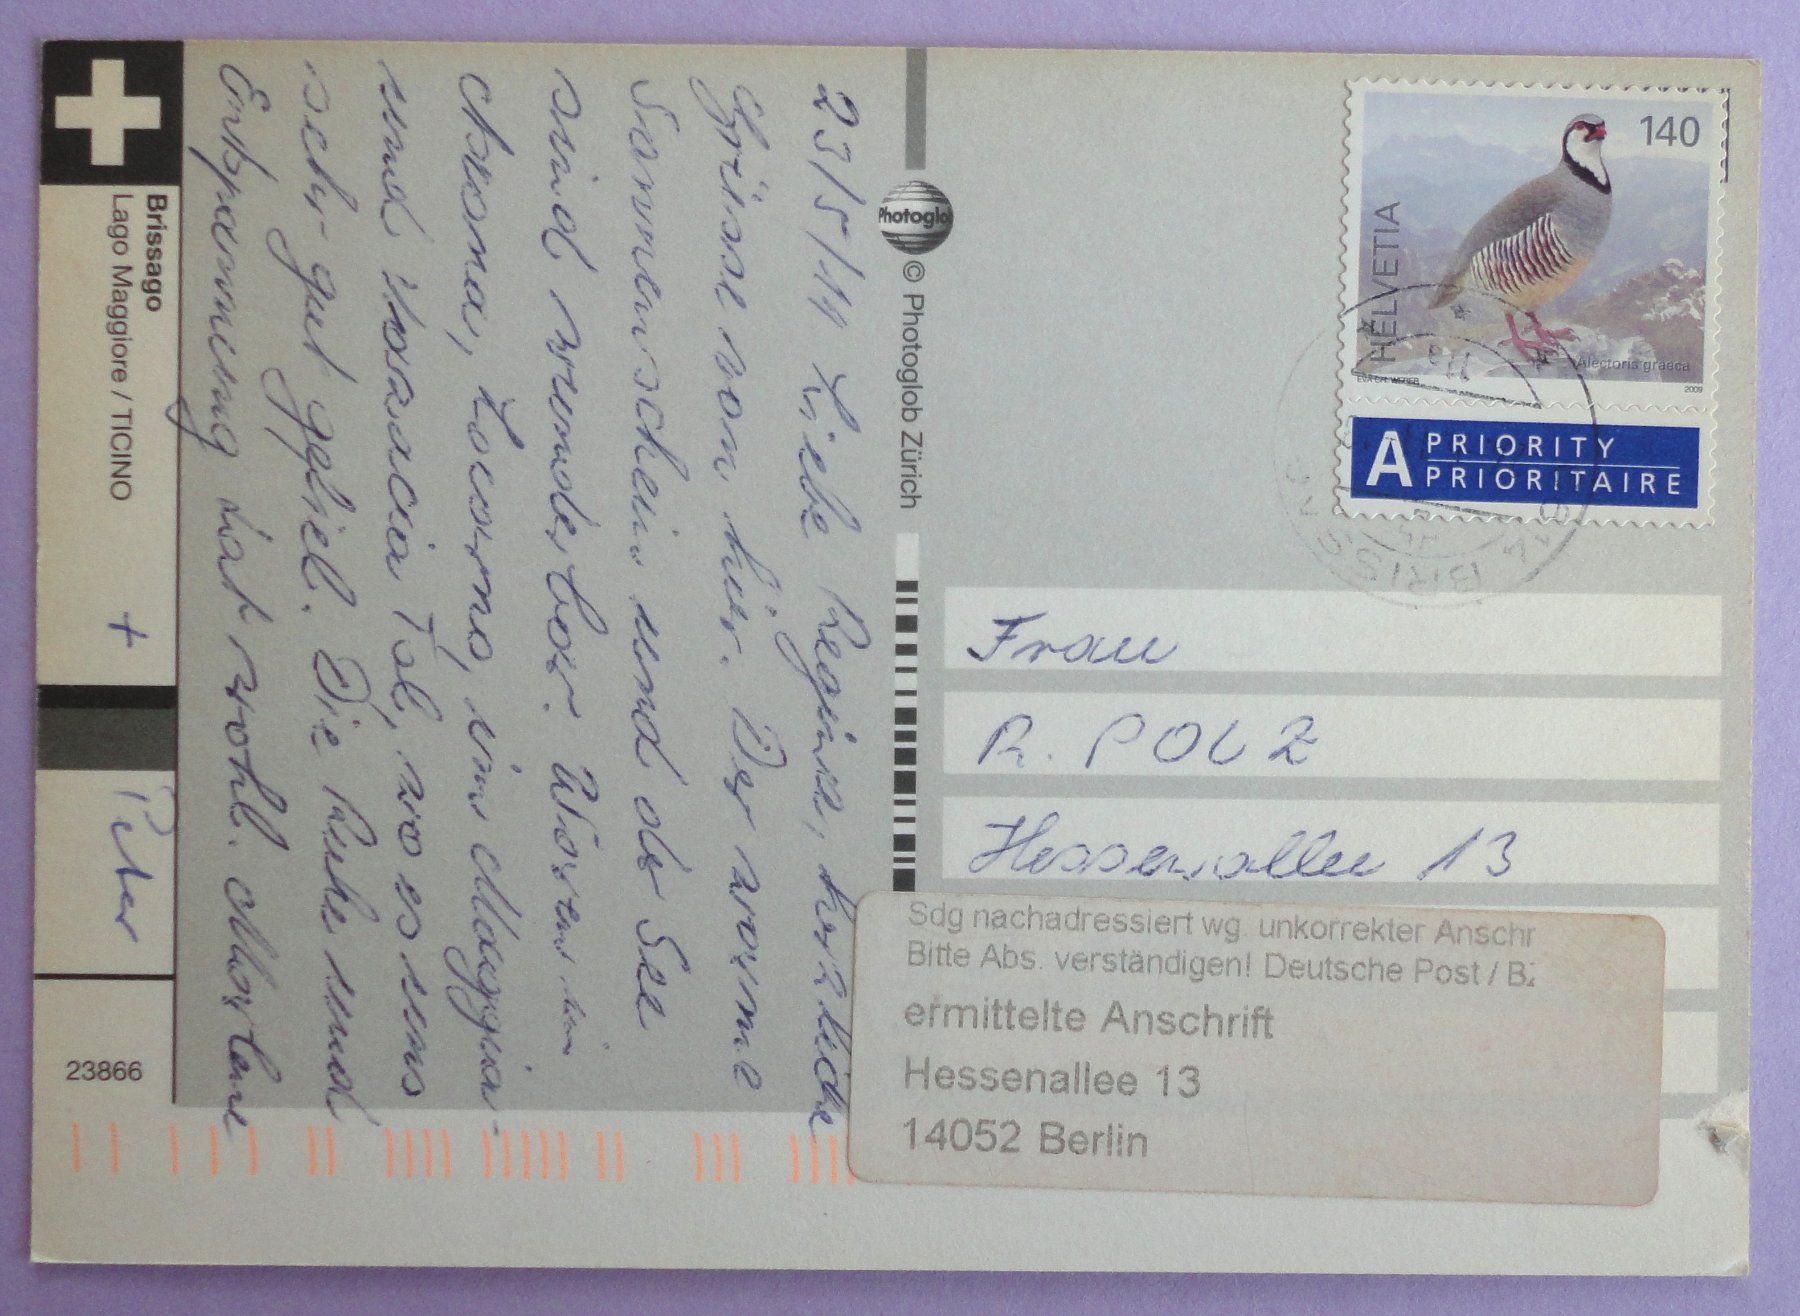 Brissago
Lago Maggiore / TICINO
23/5/11 Liebe Regina, herzliche
Grüsse von hier. Der warme
Sonnenschein und der See
sind wunderbar. Waren in
Ascona, Locarno, im Maggia-
und Verzasca Tal, wo es uns
sehr gut gefiel. Die Ruhe und
Entspannung tat wohl. Marlene
+ Peter
23866
Photoglob
© Photoglob Zürich
140
HELVETIA
Alectoris graeca
2009
A PRIORITY
PRIORITAIRE
Frau
R. POLZ
Hessenallee 13
Sdg nachadressiert wg. unkorrekter Anschr
Bitte Abs. verständigen! Deutsche Post / B
ermittelte Anschrift
Hessenallee 13
14052 Berlin